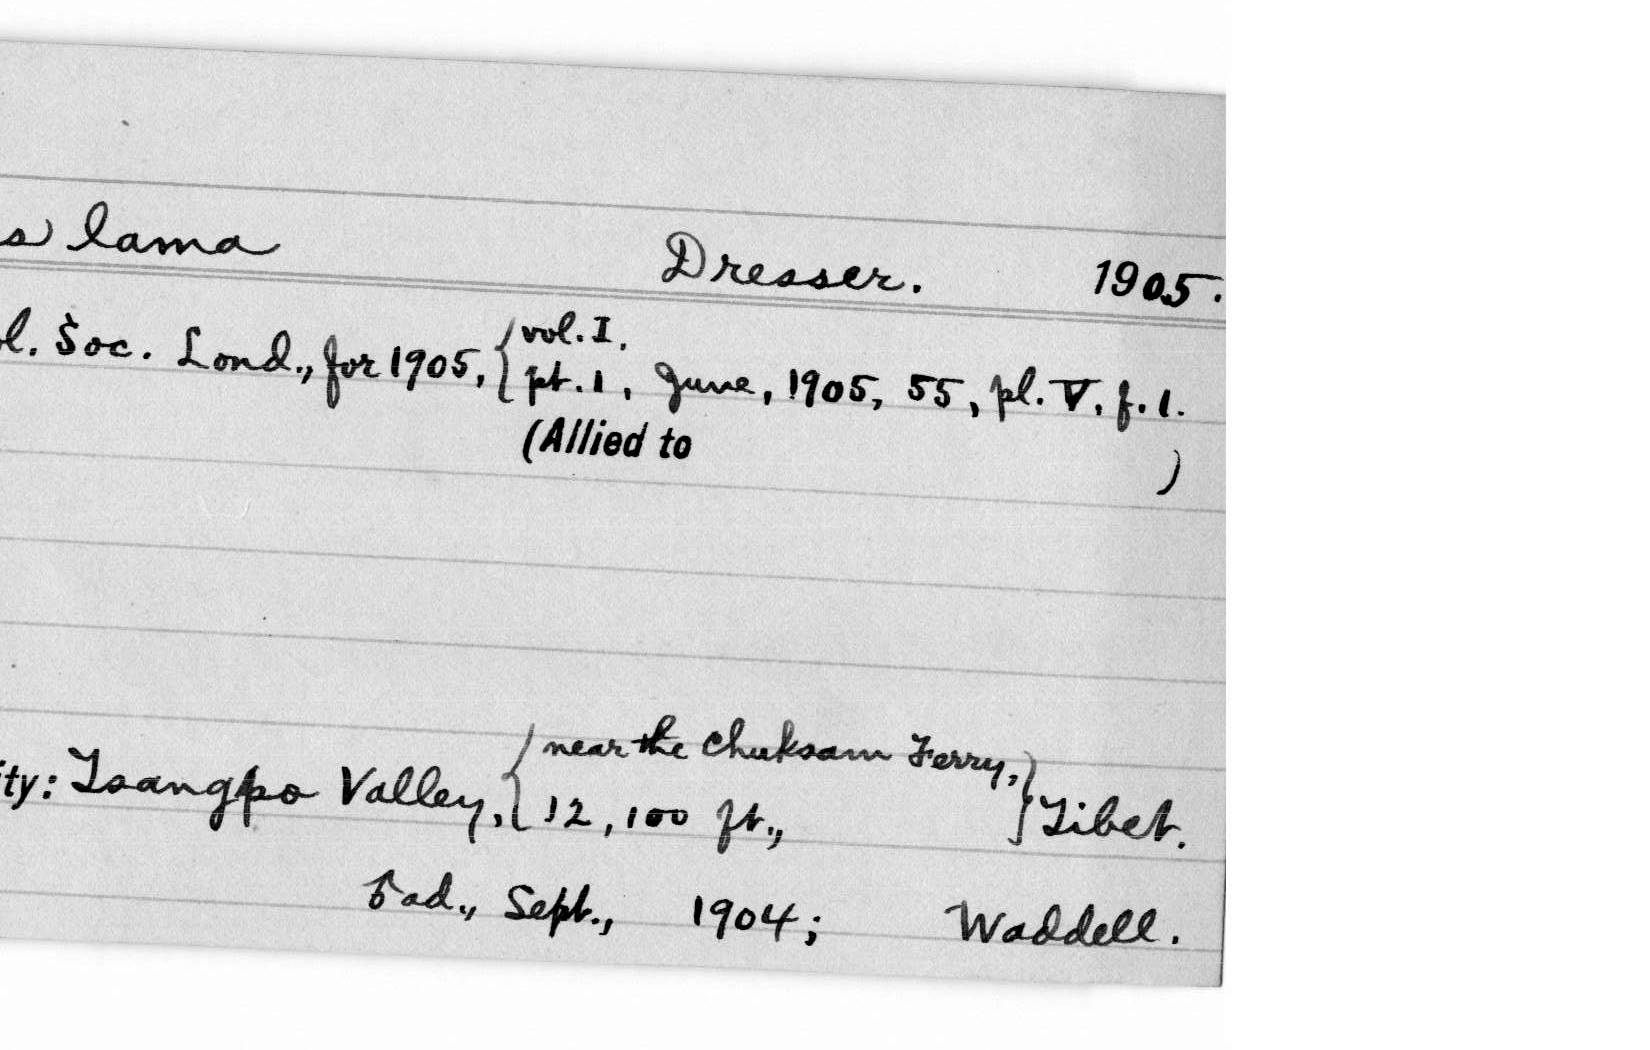 s lama Dresser. 1905.
l. Soc. Lond., for 1905, { vol. I,
pt. 1, June, 1905, 55, pl. V, f. 1.
(Allied to )
ity: Tsangpo Valley, { near the Chuksam Ferry, } Tibet.
12,100 ft.,
ad., Sept., 1904; Waddell.